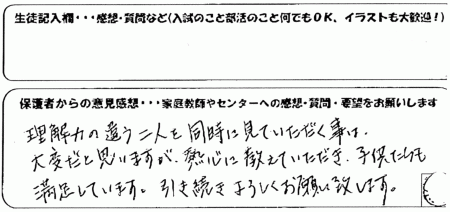 生徒記入欄・・・感想・質問など(入試のこと部活のこと何でもＯＫ、イラストも大歓迎！)
保護者からの意見感想・・・家庭教師やセンターへの感想・質問・要望をお願いします
理解力の違う二人を同時に見ていただく事は、
大変だと思いますが、熱心に教えていただき、子供たちも
満足しています。引き続きよろしくお願い致します。